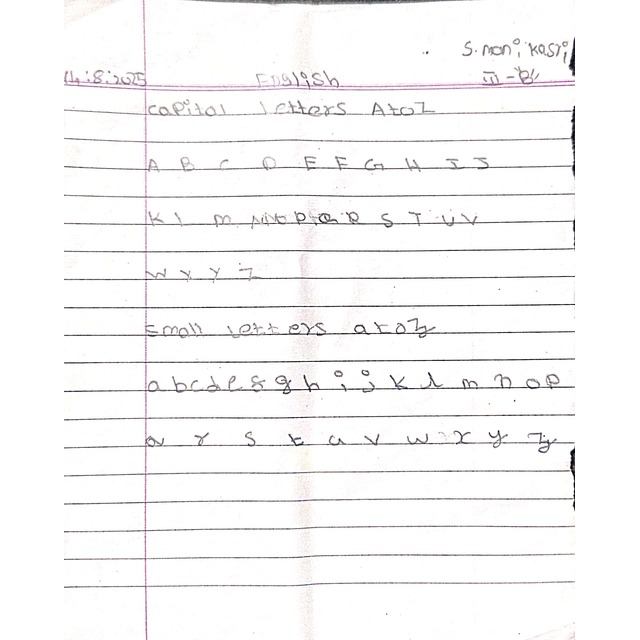 S. mani kasri
14:8:2025 English III - B
capital letters A to Z
A B C D E F G H I J
K L m N O P Q R S T U V
W X Y Z
small letters a to z
a b c d e f g h i j k l m n o p
q r s t u v w x y z